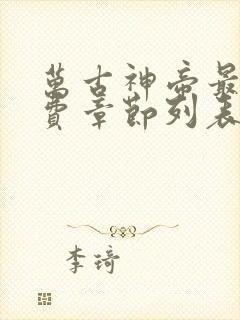 萬古神帝最
費章節列表
李琦